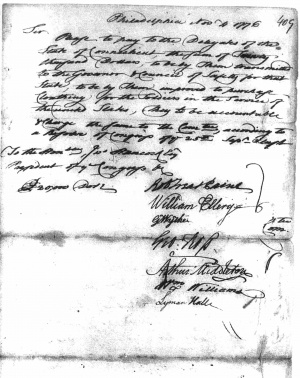 Philadelphia Nov. 4 1776
409
Sir
Please to pay to the Delegates of the
State of Connecticut the sum of Twenty
thousand Dollars, to be by them transmitted
to the Governor & Council of Safety for that
State, to be by them to purchase
Clothing for the Soldiers in the Service of
the United States, they to be accountable
& charge the same to the according to
a Resolve of Congress of 25th Sept.
To the Hon. Jno Hancock Esq
President of Congress &c
20,000 Doll
Rob Treat Paine
William Ellery
Geo. Ross
Arthur Middleton
Wm Williams
Lyman Hall